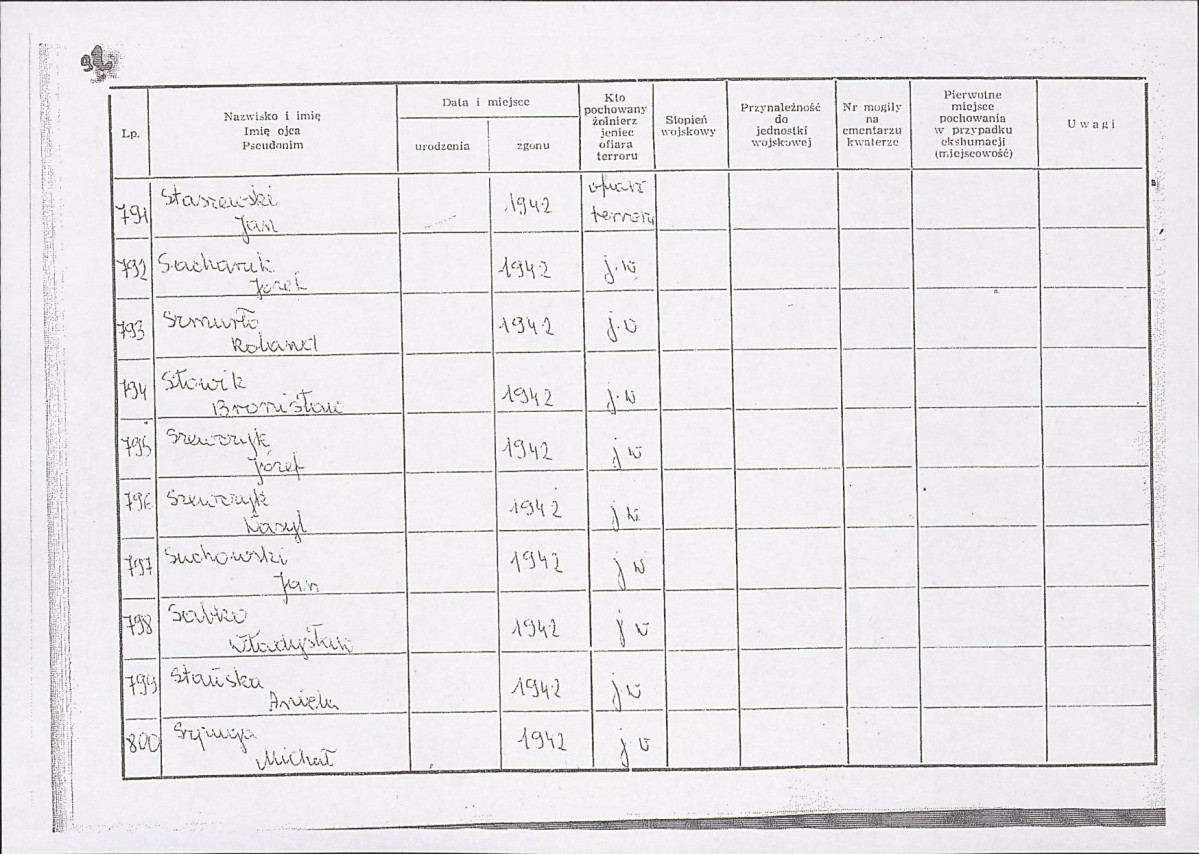 Lp.
Nazwisko i imię
Imię ojca
Pseudonim
Data i miejsce
urodzenia
zgonu
Kto
pochowany
żołnierz
jeniec
ofiara
terroru
Stopień
wojskowy
Przynależność
do
jednostki
wojskowej
Nr mogiły
na
cmentarzu
kwaterze
Pierwotne
miejsce
pochowania
w przypadku
ekshumacji
(miejscowość)
Uwagi
791 Staszewski 1942 ofiara
Jan terroru
792 Sacharuk 1942 j.w
Józef
793 Szmurło 1942 j.w
794 Słowik 1942 j.w
Bronisław
795 Szewczyk 1942 j w
Józef
796 Szewczyk 1942 j w
Wasyl
797 Suchowski 1942 j w
Jan
798 1942 j w
Władysław
799 Stańska 1942 j w
Aniela
800 1942 j w
Michał